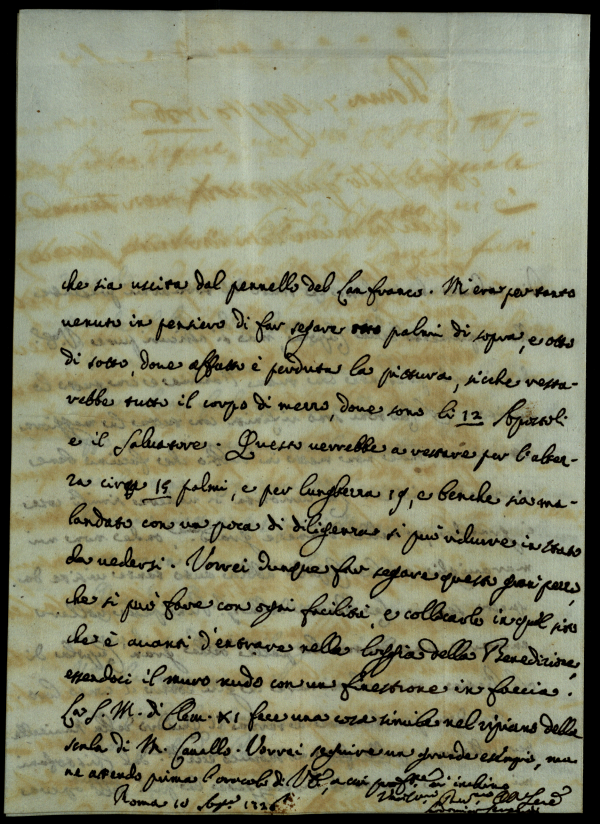 che sia uscita dal pennello del Lanfranco. M'era per tanto
venuto in pensiero di far segare otto palmi di sopra, e otto
di sotto, dove affatto è perduta la pittura, sicche resta-
rebbe tutto il corpo di mezzo, dove sono li 12 Apostoli
e il Salvatore. Questo verrebbe a restare per l'altez-
za circa 15 palmi, e per lunghezza 19, e benche sia ma-
landato con un poca di diligenza si può ridurre in stato
da vedersi. Vorrei dunque far segare questo gran pezzo,
che si può fare con ogni facilità, e collocarlo in quel sito
che è avanti d'entrare nella loggia della Benedizione,
essendoci il muro nudo con un finestrone in faccia.
La S. M. di Clem. XI fece una cosa simile nel ripiano della
scala di M. Cavallo. Vorrei seguire un grande esempio, ma
ne attendo prima l'oracolo di a cui inchino
Roma 10 Sett.e 1726